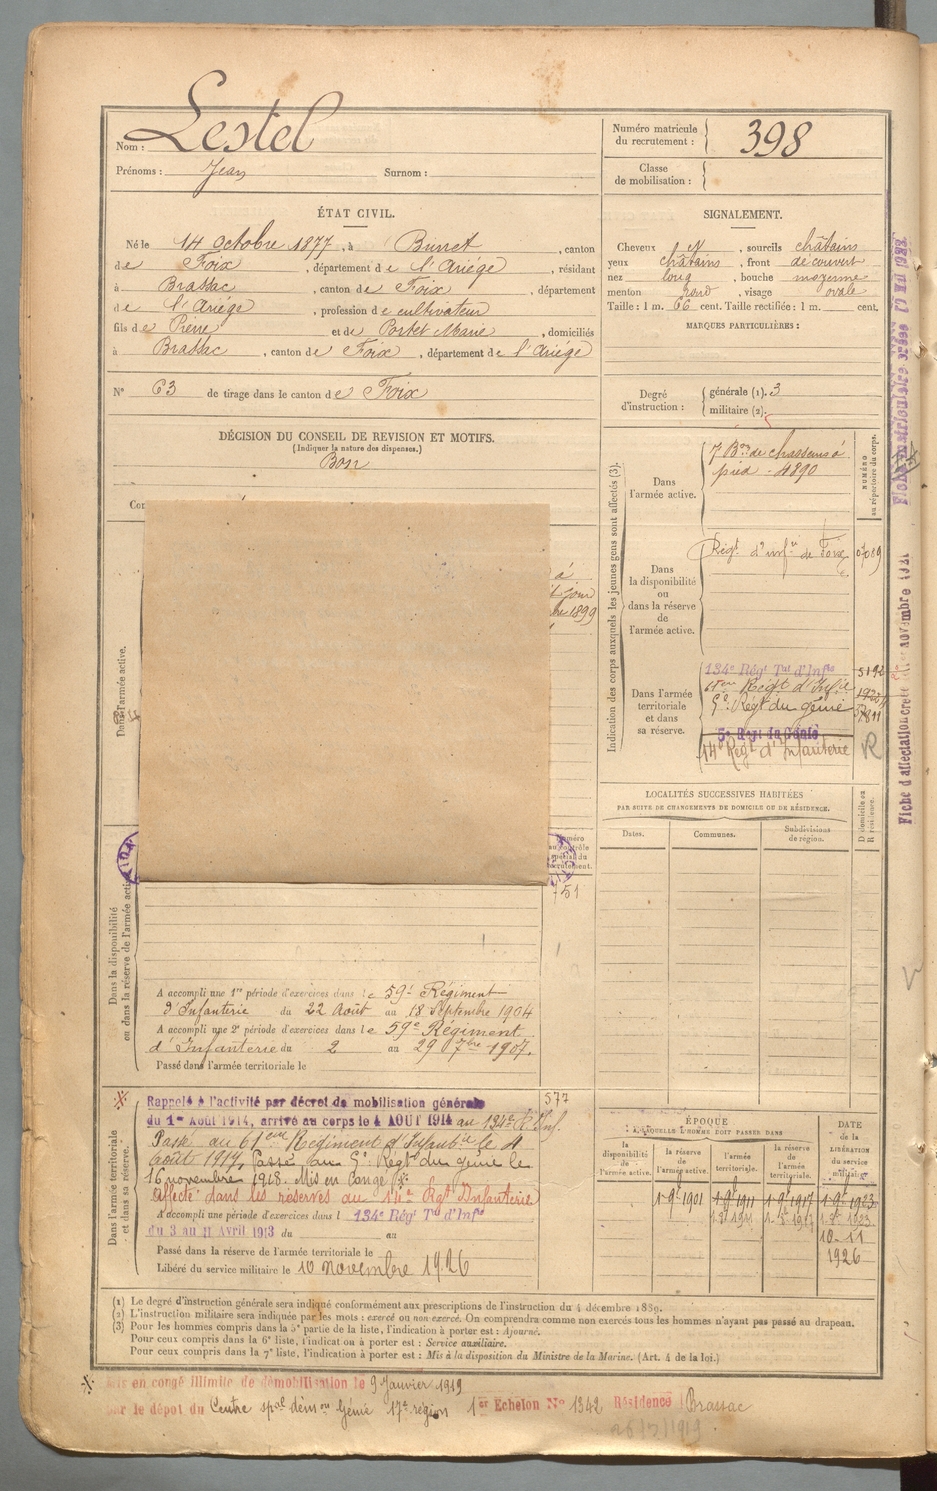 Nom : Lestel
Prénoms : Jean Surnom :
Numéro matricule du recrutement : 398
Classe de mobilisation :
ÉTAT CIVIL.
Né le 14 octobre 1877, à Burret, canton
de Foix, département de l'Ariége, résidant
à Brassac, canton de Foix, département
de l'Ariége, profession de cultivateur
fils de Pierre et de Portet Marie, domiciliés
à Brassac, canton de Foix, département de l'Ariége
N° 63 de tirage dans le canton de Foix
SIGNALEMENT.
Cheveux et, sourcils châtains
yeux châtains, front découvert
nez long, bouche moyenne
menton rond, visage ovale
Taille : 1 m. 66 cent. Taille rectifiée : 1 m. cent.
MARQUES PARTICULIÈRES :
Degré d'instruction : générale (1). 3
militaire (2).
DÉCISION DU CONSEIL DE REVISION ET MOTIFS.
(Indiquer la nature des dispenses.)
Bon
Indication des corps auxquels les jeunes gens sont affectés (3).
NUMÉRO au répertoire du corps.
Dans l'armée active.
7 Bon de chasseurs à
pied - 4890
Dans la disponibilité ou dans la réserve de l'armée active.
Régt d'infie de Foix
Dans l'armée territoriale et dans sa réserve.
134e Régt Tal d'Infie
Régt d'Infie
5e Régt du génie
5e Régt du Génie
14e Régt d'Infanterie
R
LOCALITÉS SUCCESSIVES HABITÉES
PAR SUITE DE CHANGEMENTS DE DOMICILE OU DE RÉSIDENCE.
Dates. Communes. Subdivisions de région. D domicile ou R résidence.
Dans l'armée active.
à
jour
1899
51
Dans la disponibilité ou dans la réserve de l'armée active.
A accompli une 1re période d'exercices dans le 59e Régiment
d'Infanterie du 22 Août au 18 Septembre 1904
A accompli une 2e période d'exercices dans le 59e Régiment
d'Infanterie du 2 au 29 7bre 1907.
Passé dans l'armée territoriale le
577
Dans l'armée territoriale et dans sa réserve.
Rappelé à l'activité par décret de mobilisation générale
du 1er Août 1914, arrivé au corps le 4 AOUT 1914 au 134e R. Inf.
Passé au 61eme Régiment d'Infantie le 4
août 1917, Passé au 5e Régt du génie le
16 novembre 1918. Mis en congé
Affecté dans les réserves au 14e Rgt d'Infanterie
A accompli une période d'exercices dans l 134e Régt Tal d'Infie
du 3 au 11 Avril 1913 du au
Passé dans la réserve de l'armée territoriale le
Libéré du service militaire le 10 novembre 1926
ÉPOQUE
A LAQUELLE L'HOMME DOIT PASSER DANS
la disponibilité de l'armée active.
la réserve de l'armée active.
l'armée territoriale.
la réserve de l'armée territoriale.
DATE de la LIBÉRATION du service militaire.
1-9e 1901 1-9e 1911 1-9e 1917 1-9e 1923
10-11
1926
(1) Le degré d'instruction générale sera indiqué conformément aux prescriptions de l'instruction du 4 décembre 1889.
(2) L'instruction militaire sera indiquée par les mots : exercé ou non exercé. On comprendra comme non exercés tous les hommes n'ayant pas passé au drapeau.
(3) Pour les hommes compris dans la 5e partie de la liste, l'indication à porter est : Ajourné.
Pour ceux compris dans la 6e liste, l'indication à porter est : Service auxiliaire.
Pour ceux compris dans la 7e liste, l'indication à porter est : Mis à la disposition du Ministre de la Marine. (Art. 4 de la loi.)
Mis en congé illimité de démobilisation le 9 Janvier 1919
par le dépot du Centre spal démon Génie 17e région 1er Echelon N° 1342 Résidence Brassac